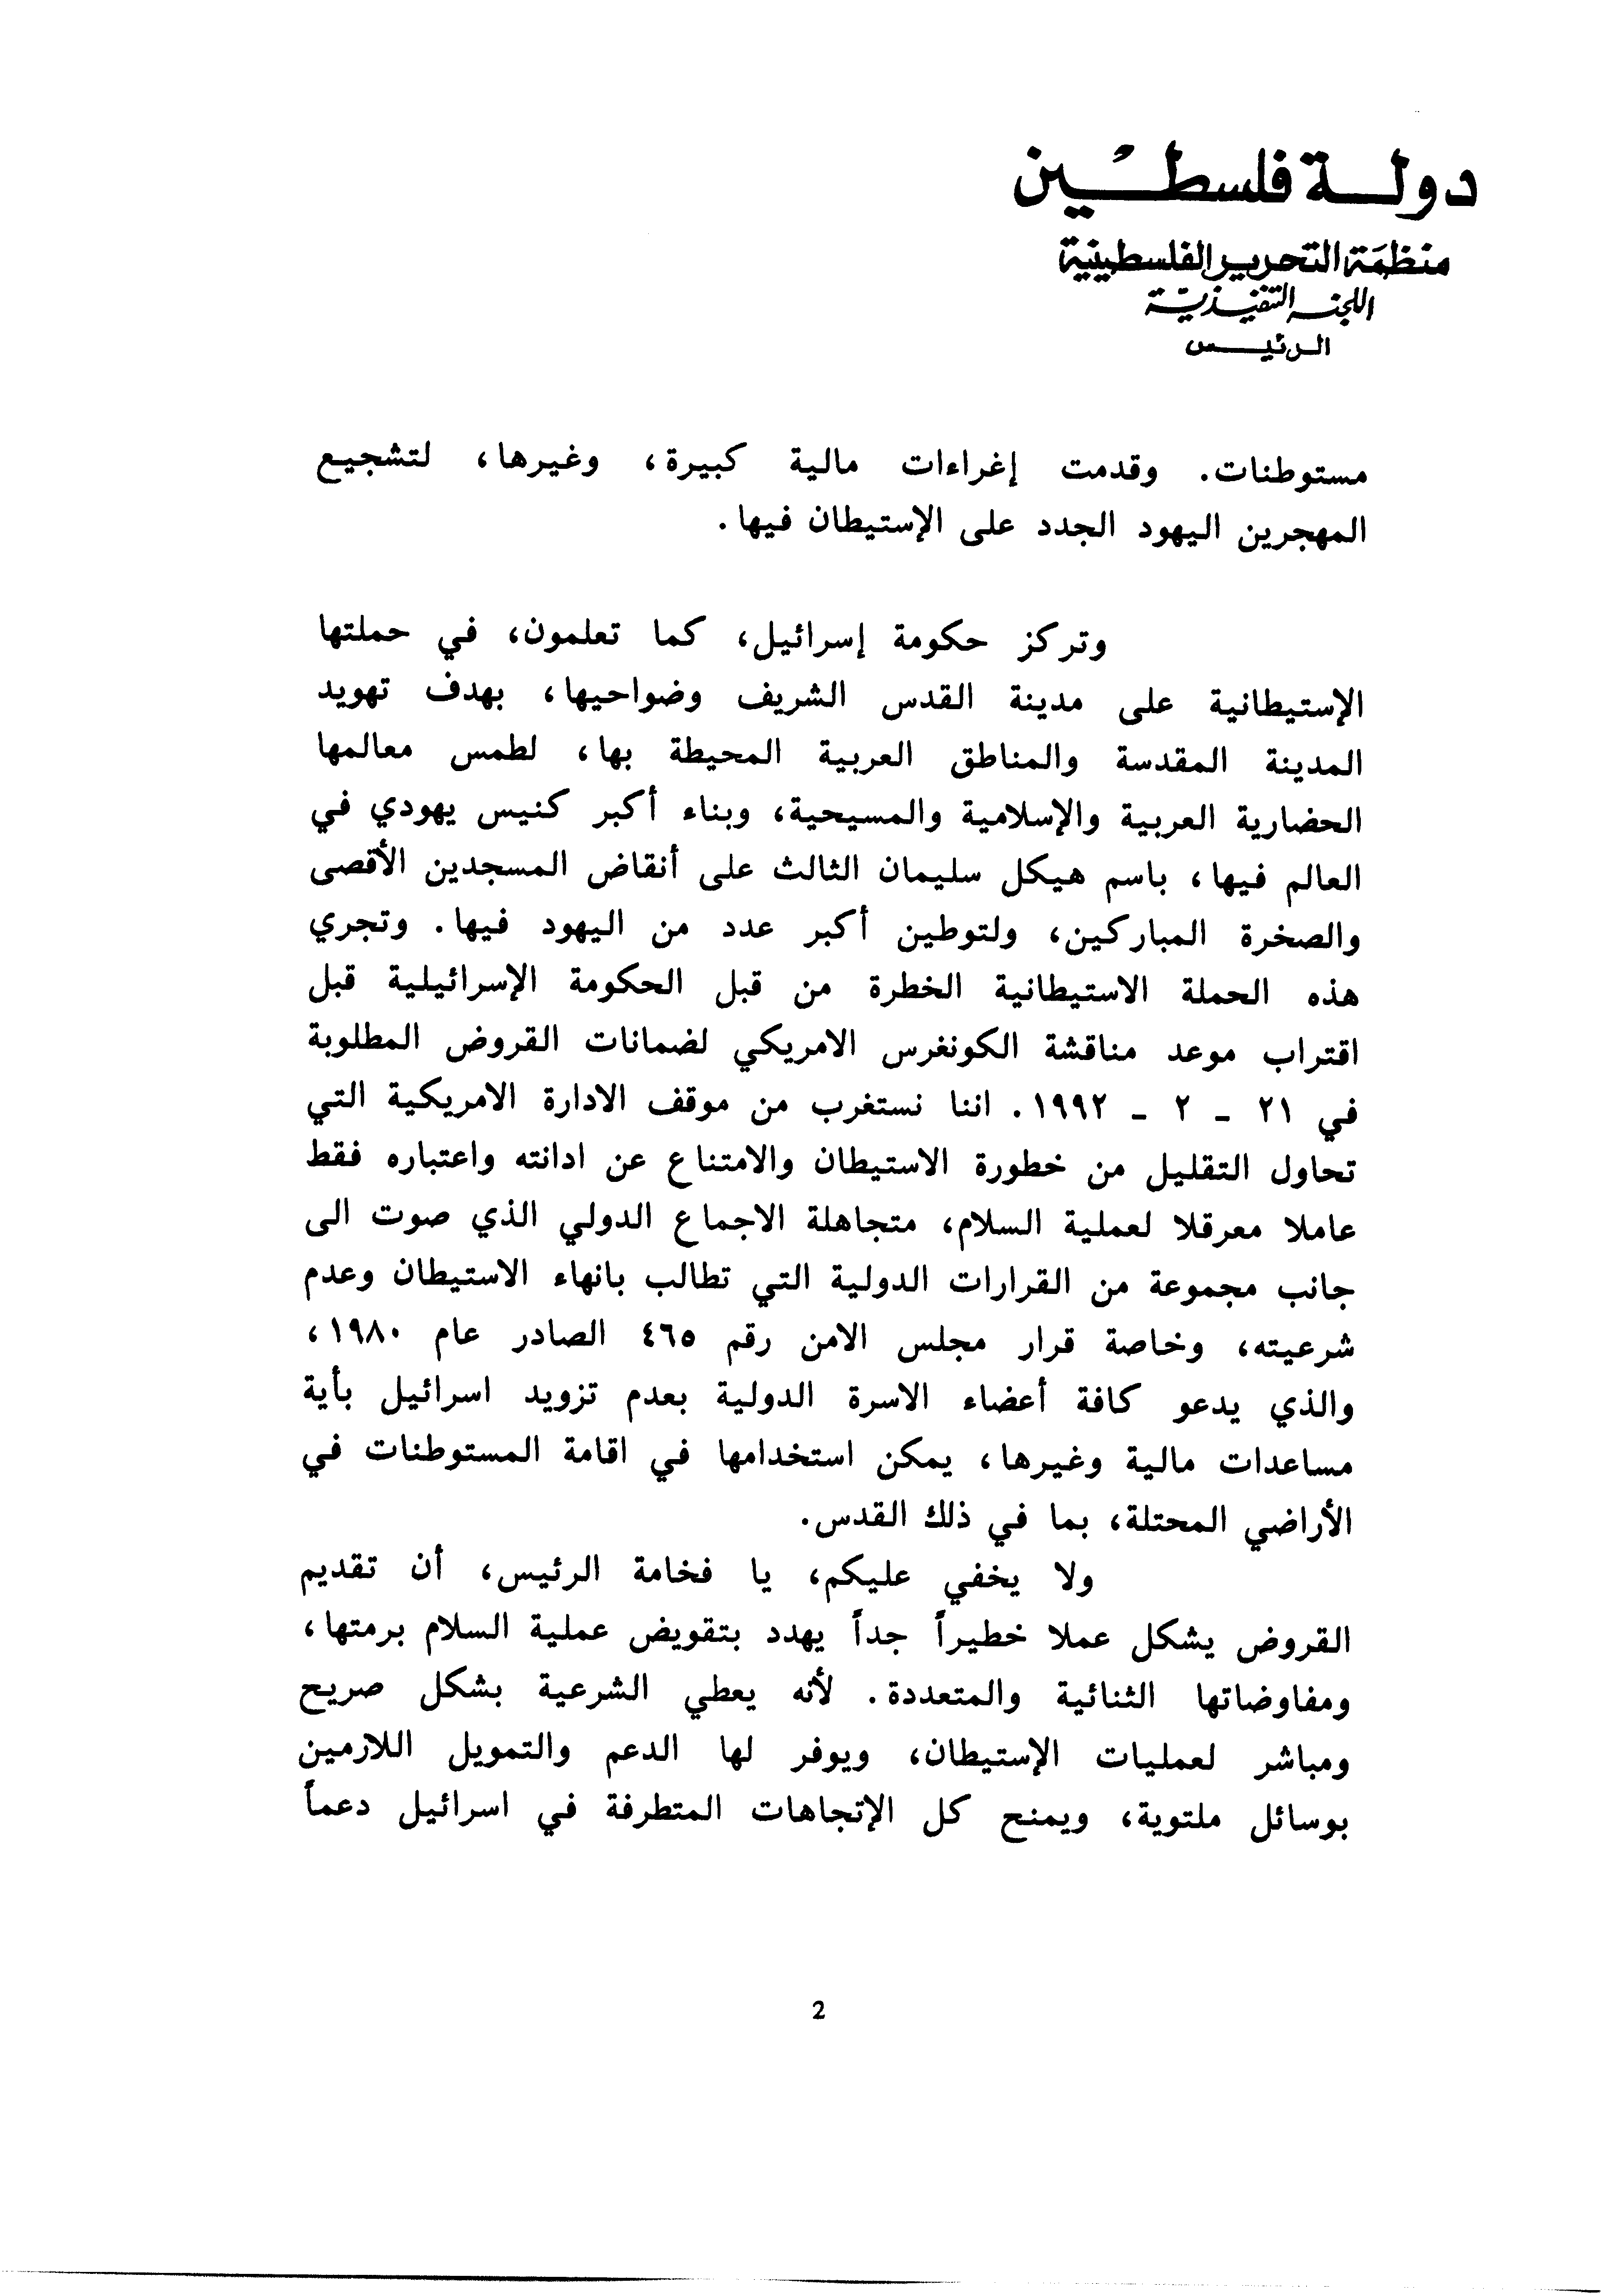 دولة فلسطين
منظمة التحرير الفلسطينية
اللجنة التنفيذية
الرئيس
مستوطنات. وقدمت إغراءات مالية كبيرة، وغيرها، لتشجيع
المهجرين اليهود الجدد على الإستيطان فيها.
وتركز حكومة إسرائيل، كما تعلمون، في حملتها
الإستيطانية على مدينة القدس الشريف وضواحيها، بهدف تهويد
المدينة المقدسة والمناطق العربية المحيطة بها، لطمس معالمها
الحضارية العربية والإسلامية والمسيحية، وبناء أكبر كنيس يهودي في
العالم فيها، باسم هيكل سليمان الثالث على أنقاض المسجدين الأقصى
والصخرة المباركين، ولتوطين أكبر عدد من اليهود فيها. وتجري
هذه الحملة الاستيطانية الخطرة من قبل الحكومة الإسرائيلية قبل
اقتراب موعد مناقشة الكونغرس الامريكي لضمانات القروض المطلوبة
في ٢١ - ٢ - ١٩٩٢. اننا نستغرب من موقف الادارة الامريكية التي
تحاول التقليل من خطورة الاستيطان والامتناع عن ادانته واعتباره فقط
عاملا معرقلا لعملية السلام، متجاهلة الاجماع الدولي الذي صوت الى
جانب مجموعة من القرارات الدولية التي تطالب بانهاء الاستيطان وعدم
شرعيته، وخاصة قرار مجلس الامن رقم ٤٦٥ الصادر عام ١٩٨٠،
والذي يدعو كافة أعضاء الاسرة الدولية بعدم تزويد اسرائيل بأية
مساعدات مالية وغيرها، يمكن استخدامها في اقامة المستوطنات في
الأراضي المحتلة، بما في ذلك القدس.
ولا يخفي عليكم، يا فخامة الرئيس، أن تقديم
القروض يشكل عملا خطيراً جداً يهدد بتقويض عملية السلام برمتها،
ومفاوضاتها الثنائية والمتعددة. لأنه يعطي الشرعية بشكل صريح
ومباشر لعمليات الإستيطان، ويوفر لها الدعم والتمويل اللازمين
بوسائل ملتوية، ويمنح كل الإتجاهات المتطرفة في اسرائيل دعماً
2